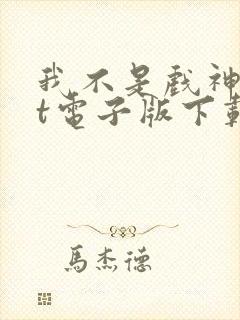 我不是戲神
t電子版下載
馬杰德